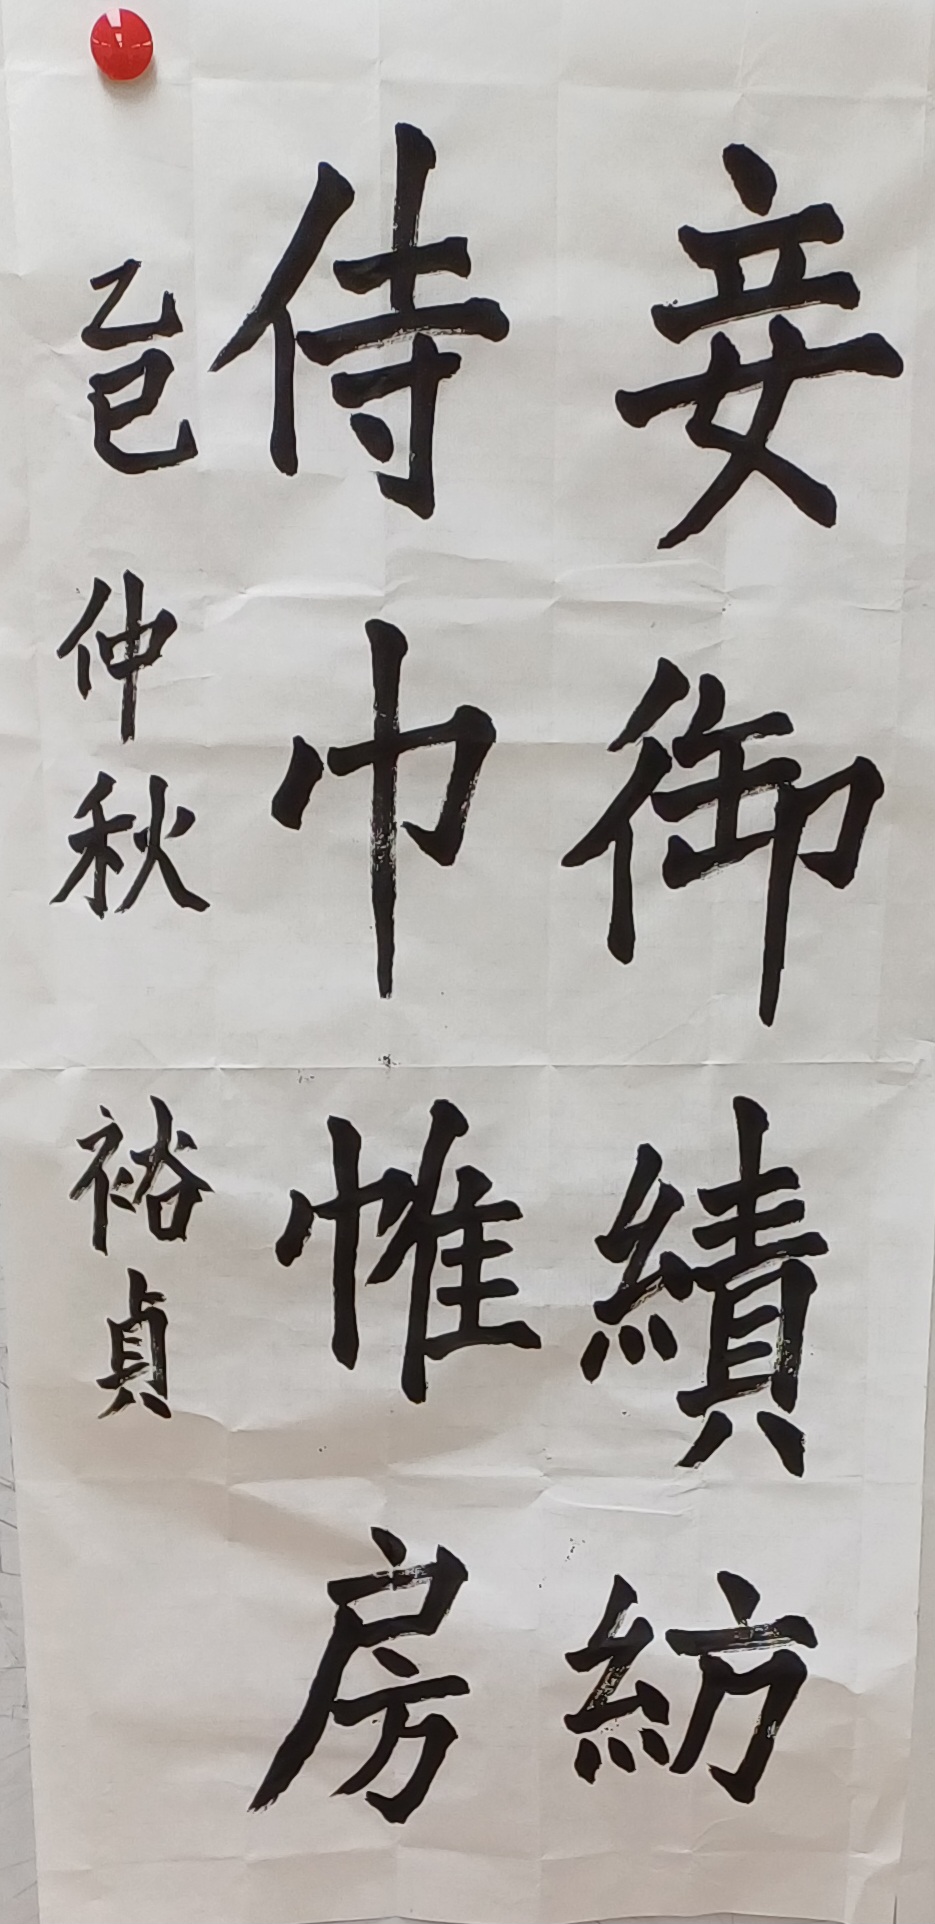 妾御績紡
侍巾帷房
乙巳 仲秋 裕貞